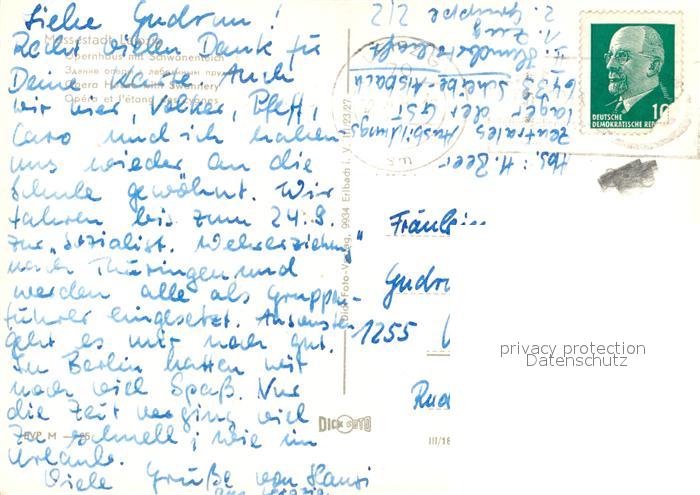 Liebe Gudrun!
Recht vielen Dank für
Deine Karte. Auch
wir hier, Volker, Pfeff,
Caro und ich haben
uns wieder an die
Schule gewöhnt. Wir
fahren bis zum 24.9.
zur "Sozialist. Wehrerziehung"
nach Thüringen und
werden alle als Gruppen-
führer eingesetzt. Ansonsten
geht es mir noch gut.
In Berlin hatten wir
noch viel Spaß. Nur
die Zeit verging viel
zu schnell, wie im
Urlaub.
Viele Grüße von Hansi
aus Leipzig
Messestadt Leipzig
Opernhaus mit Schwanenteich
Opéra et l'étang des cygnes
EVP M
Dick-Foto-Verlag, 9934 Erlbach i. V.
DICK FOTO
III/18
Abs.: H. Beer
Zentrales Ausbildungs-
lager der GST
6432 Scheibe-Alsbach
1. Hundertschaft
1. Zug
2. Gruppe 2/2
DEUTSCHE
DEMOKRATISCHE REP
10
Fräulein
Gudru
1255
privacy protection
Datenschutz